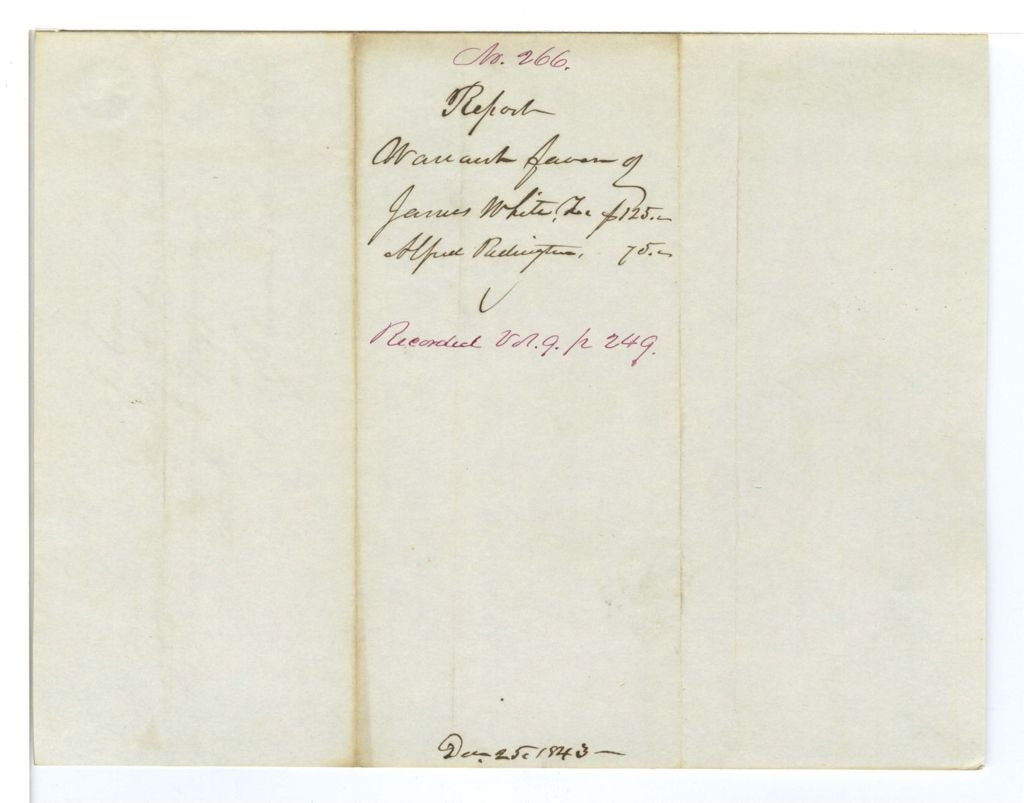 No. 266.
Report
Warrant favor of
James White, $125.
Alfred Redington, 75.
Recorded Vol. 9. p 249.
Dec. 25, 1843